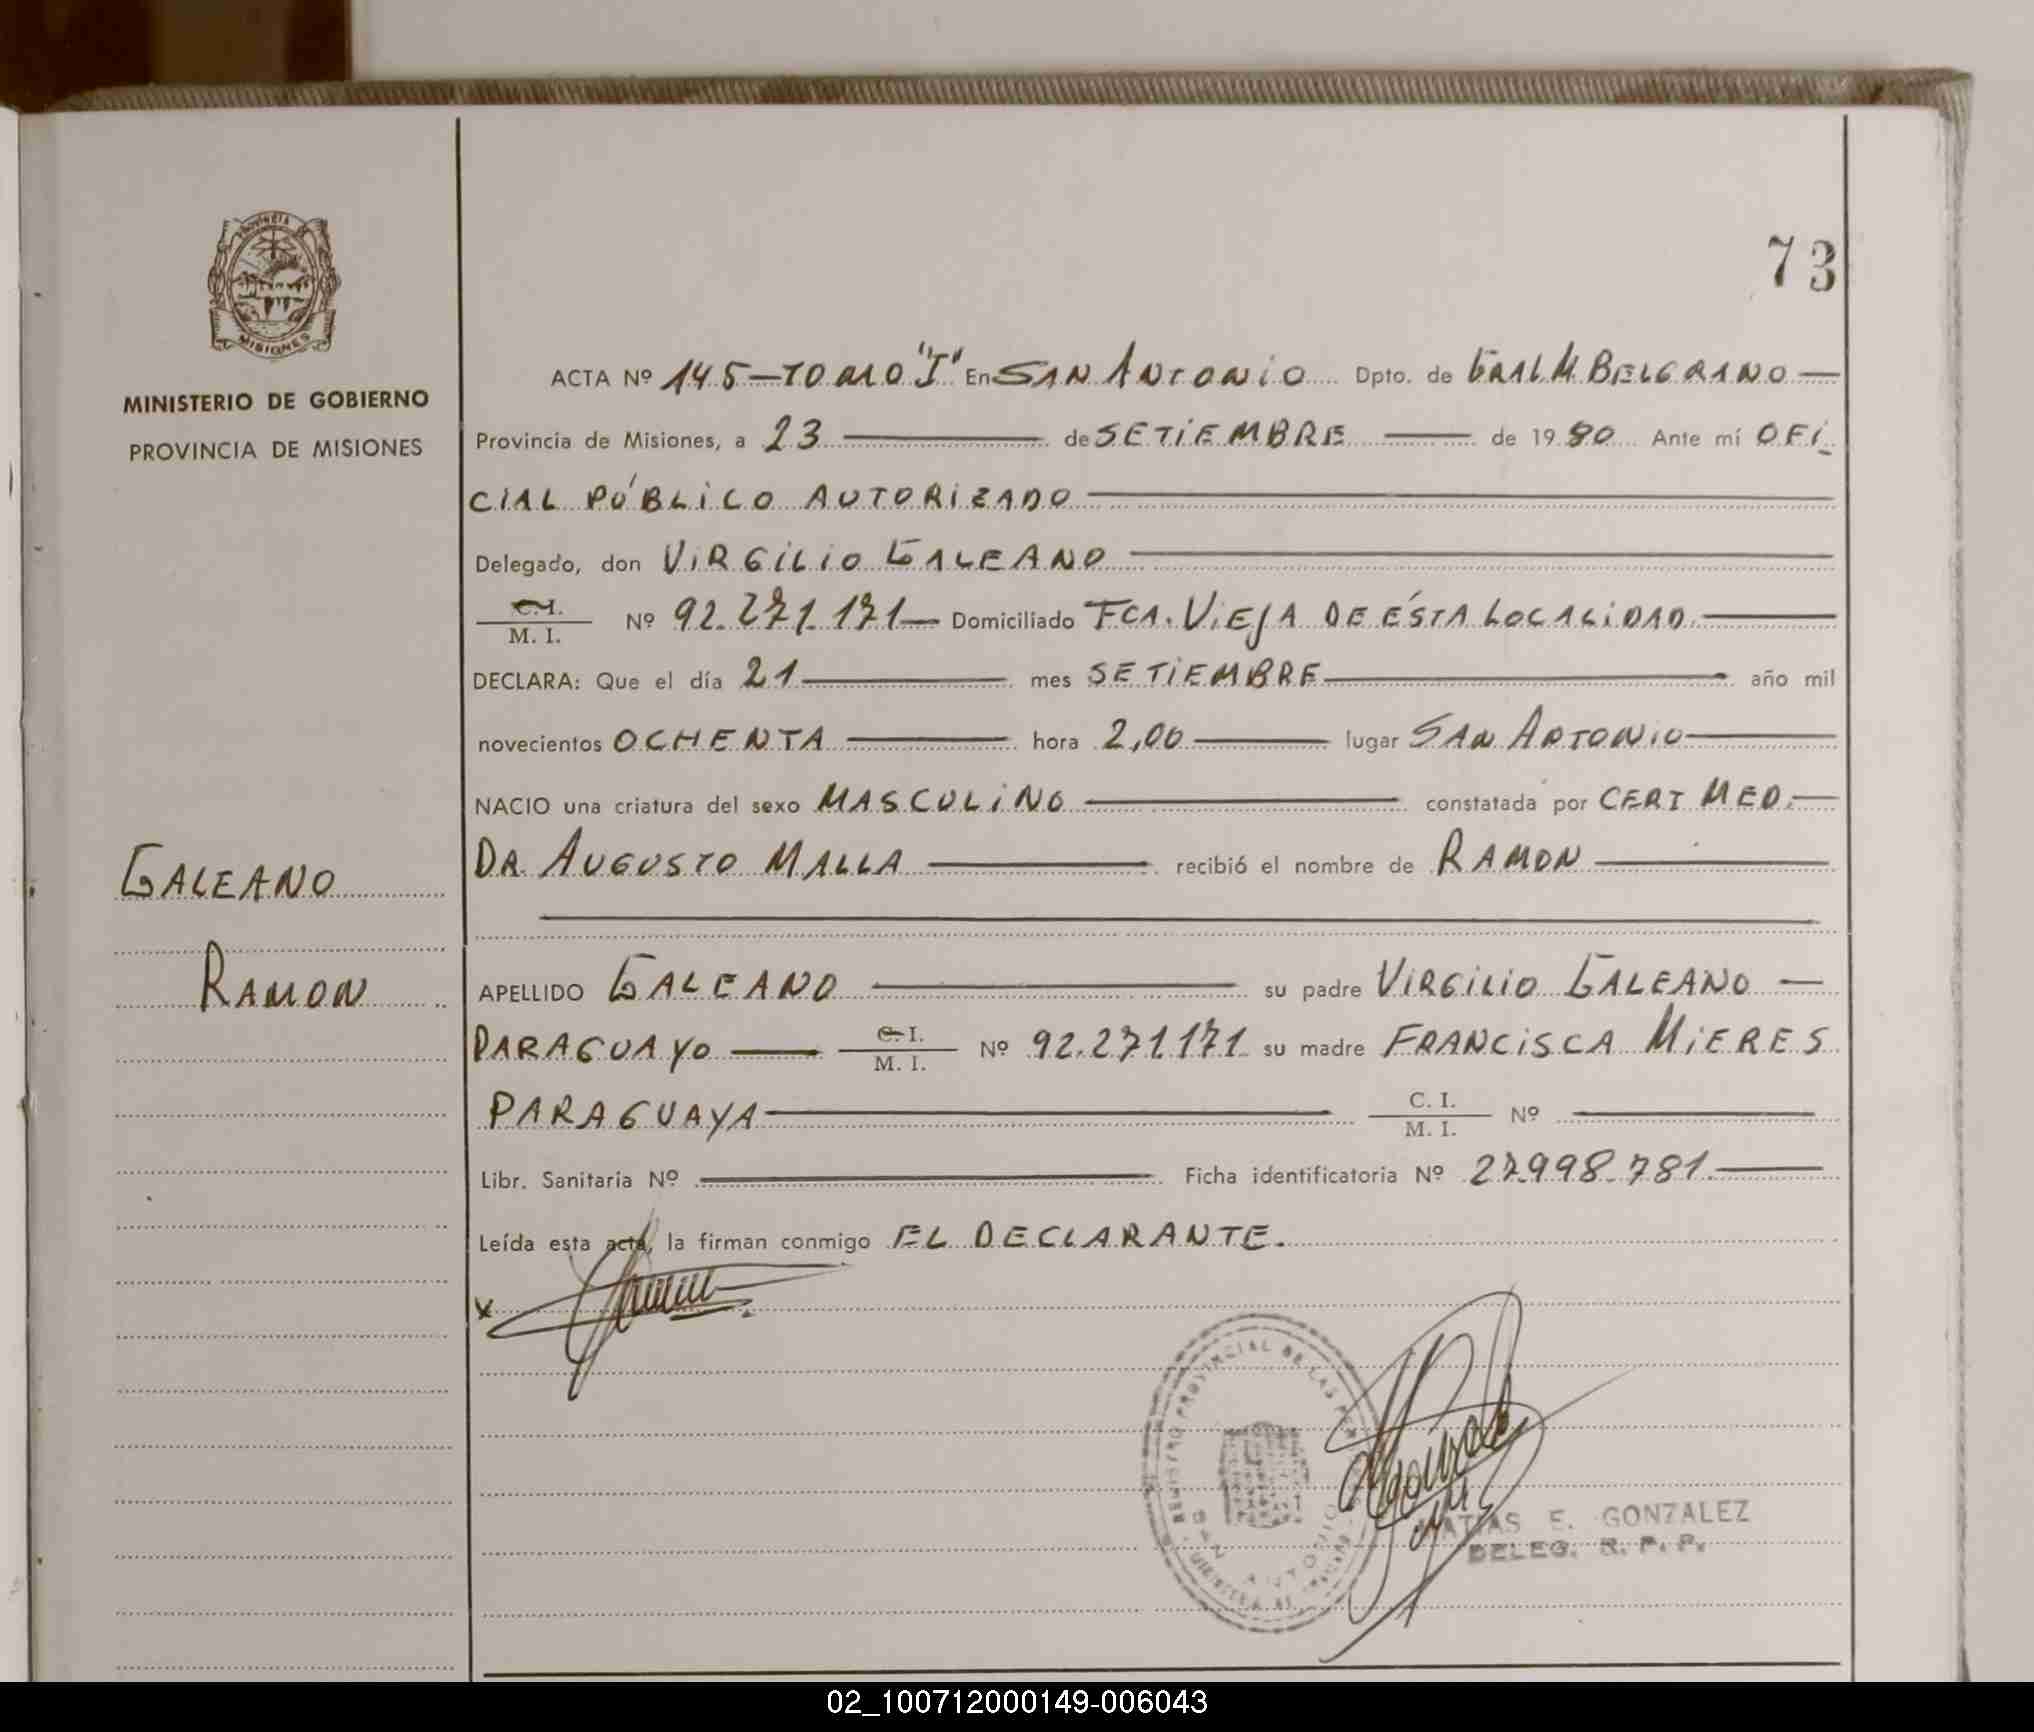 73
PROVINCIA
MISIONES
MINISTERIO DE GOBIERNO
PROVINCIA DE MISIONES
GALEANO
RAMON
ACTA Nº 145-TOMO "I" En SAN ANTONIO Dpto. de GRAL M. BELGRANO
Provincia de Misiones, a 23 de SETIEMBRE de 1980 Ante mí OFI
CIAL PÚBLICO AUTORIZADO
Delegado, don VIRGILIO GALEANO
C. I. / M. I. Nº 92.271.171 Domiciliado FCA. VIEJA DE ÉSTA LOCALIDAD.
DECLARA: Que el día 21 mes SETIEMBRE año mil
novecientos OCHENTA hora 2,00 lugar SAN ANTONIO
NACIO una criatura del sexo MASCULINO constatada por CERT MED.
DR. AUGUSTO MALLA recibió el nombre de RAMON
APELLIDO GALEANO su padre VIRGILIO GALEANO
PARAGUAYO C. I. / M. I. Nº 92.271.171 su madre FRANCISCA MIERES
PARAGUAYA C. I. / M. I. Nº
Libr. Sanitaria Nº Ficha identificatoria Nº 27.998.781.
Leída esta acta, la firman conmigo EL DECLARANTE.
x
REGISTRO PROVINCIAL DE LAS
SAN ANTONIO
MATIAS E. GONZALEZ
DELEG. R. P. P.
02_100712000149-006043